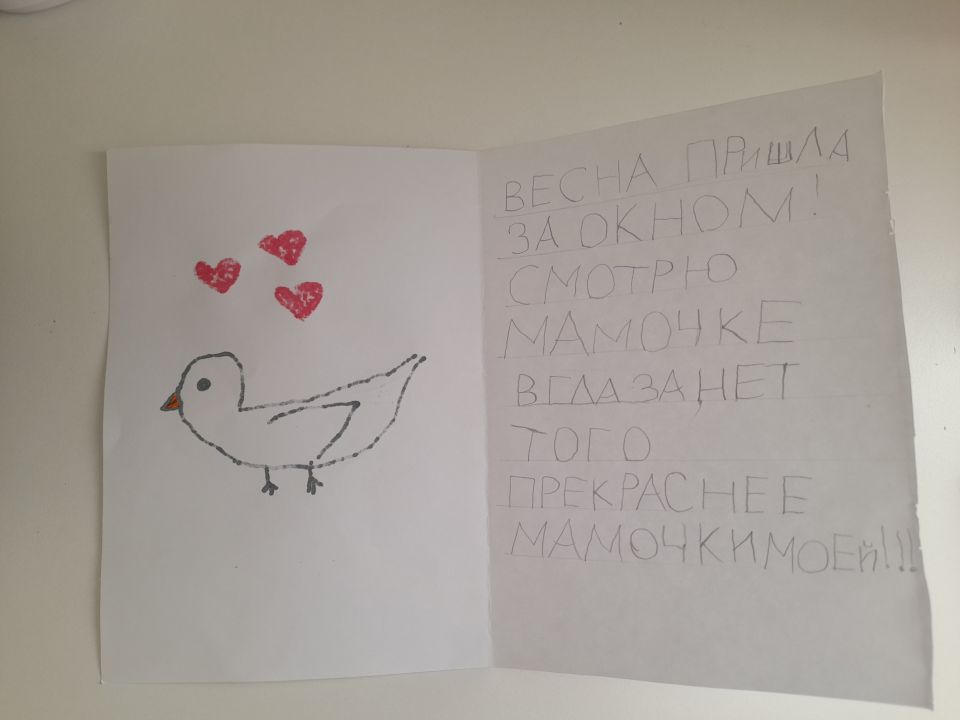 ВЕСНА ПРИШЛА
ЗА ОКНОМ!
СМОТРЮ
МАМОЧКЕ
В ГЛАЗА, НЕТ
ТОГО
ПРЕКРАСНЕЕ
МАМОЧКИ МОЕЙ!!!